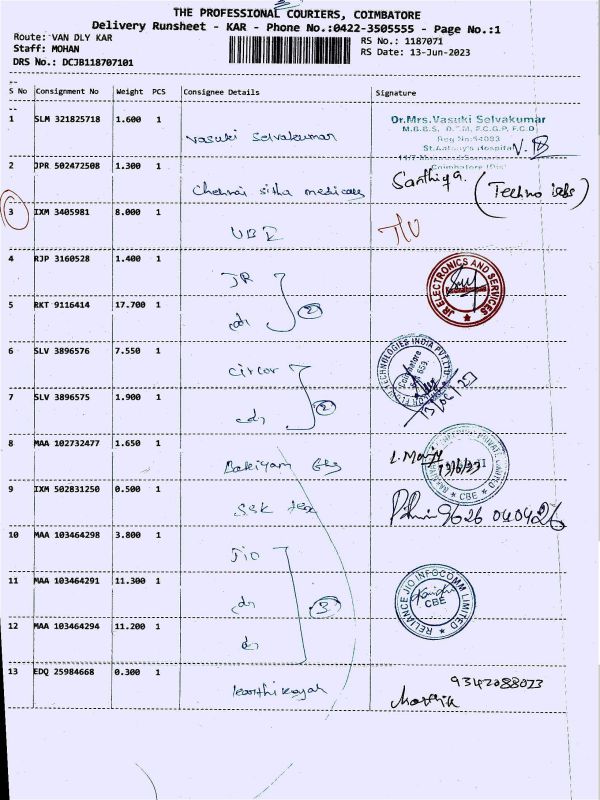 THE PROFESSIONAL COURIERS, COIMBATORE
Delivery Runsheet - KAR - Phone No.:0422-3505555 - Page No.:1
Route: VAN DLY KAR
Staff: MOHAN
DRS No.: DCJB118707101
RS No.: 1187071
RS Date: 13-Jun-2023
S No Consignment No Weight PCS Consignee Details Signature
1 SLM 321825718 1.600 1 Vasuki Selvakumar
Dr.Mrs.Vasuki Selvakumar
St.Antony's Hospital
V.
2 JPR 502472508 1.300 1 Chennai sitha medicals Santhiya. (Techno
3 IXM 3405981 8.000 1 UBI
4 RJP 3160528 1.400 1 JR
JR ELECTRONICS AND SERVICES
5 RKT 9116414 17.700 1 do 2
6 SLV 3896576 7.550 1 circor
TECHNOLOGIES INDIA PVT.LTD
Coimbatore
7 SLV 3896575 1.900 1 do 2
8 MAA 102732477 1.650 1 Bakiyam
13/6/23
PRIVATE LIMITED
CBE
9 IXM 502831250 0.500 1 SSK tex 9626 040426
10 MAA 103464298 3.800 1 Jio
11 MAA 103464291 11.300 1 do 3
RELIANCE JIO INFOCOMM LIMITED
CBE
12 MAA 103464294 11.200 1 do
13 EDQ 25984668 0.300 1 karthikayah 9342088023